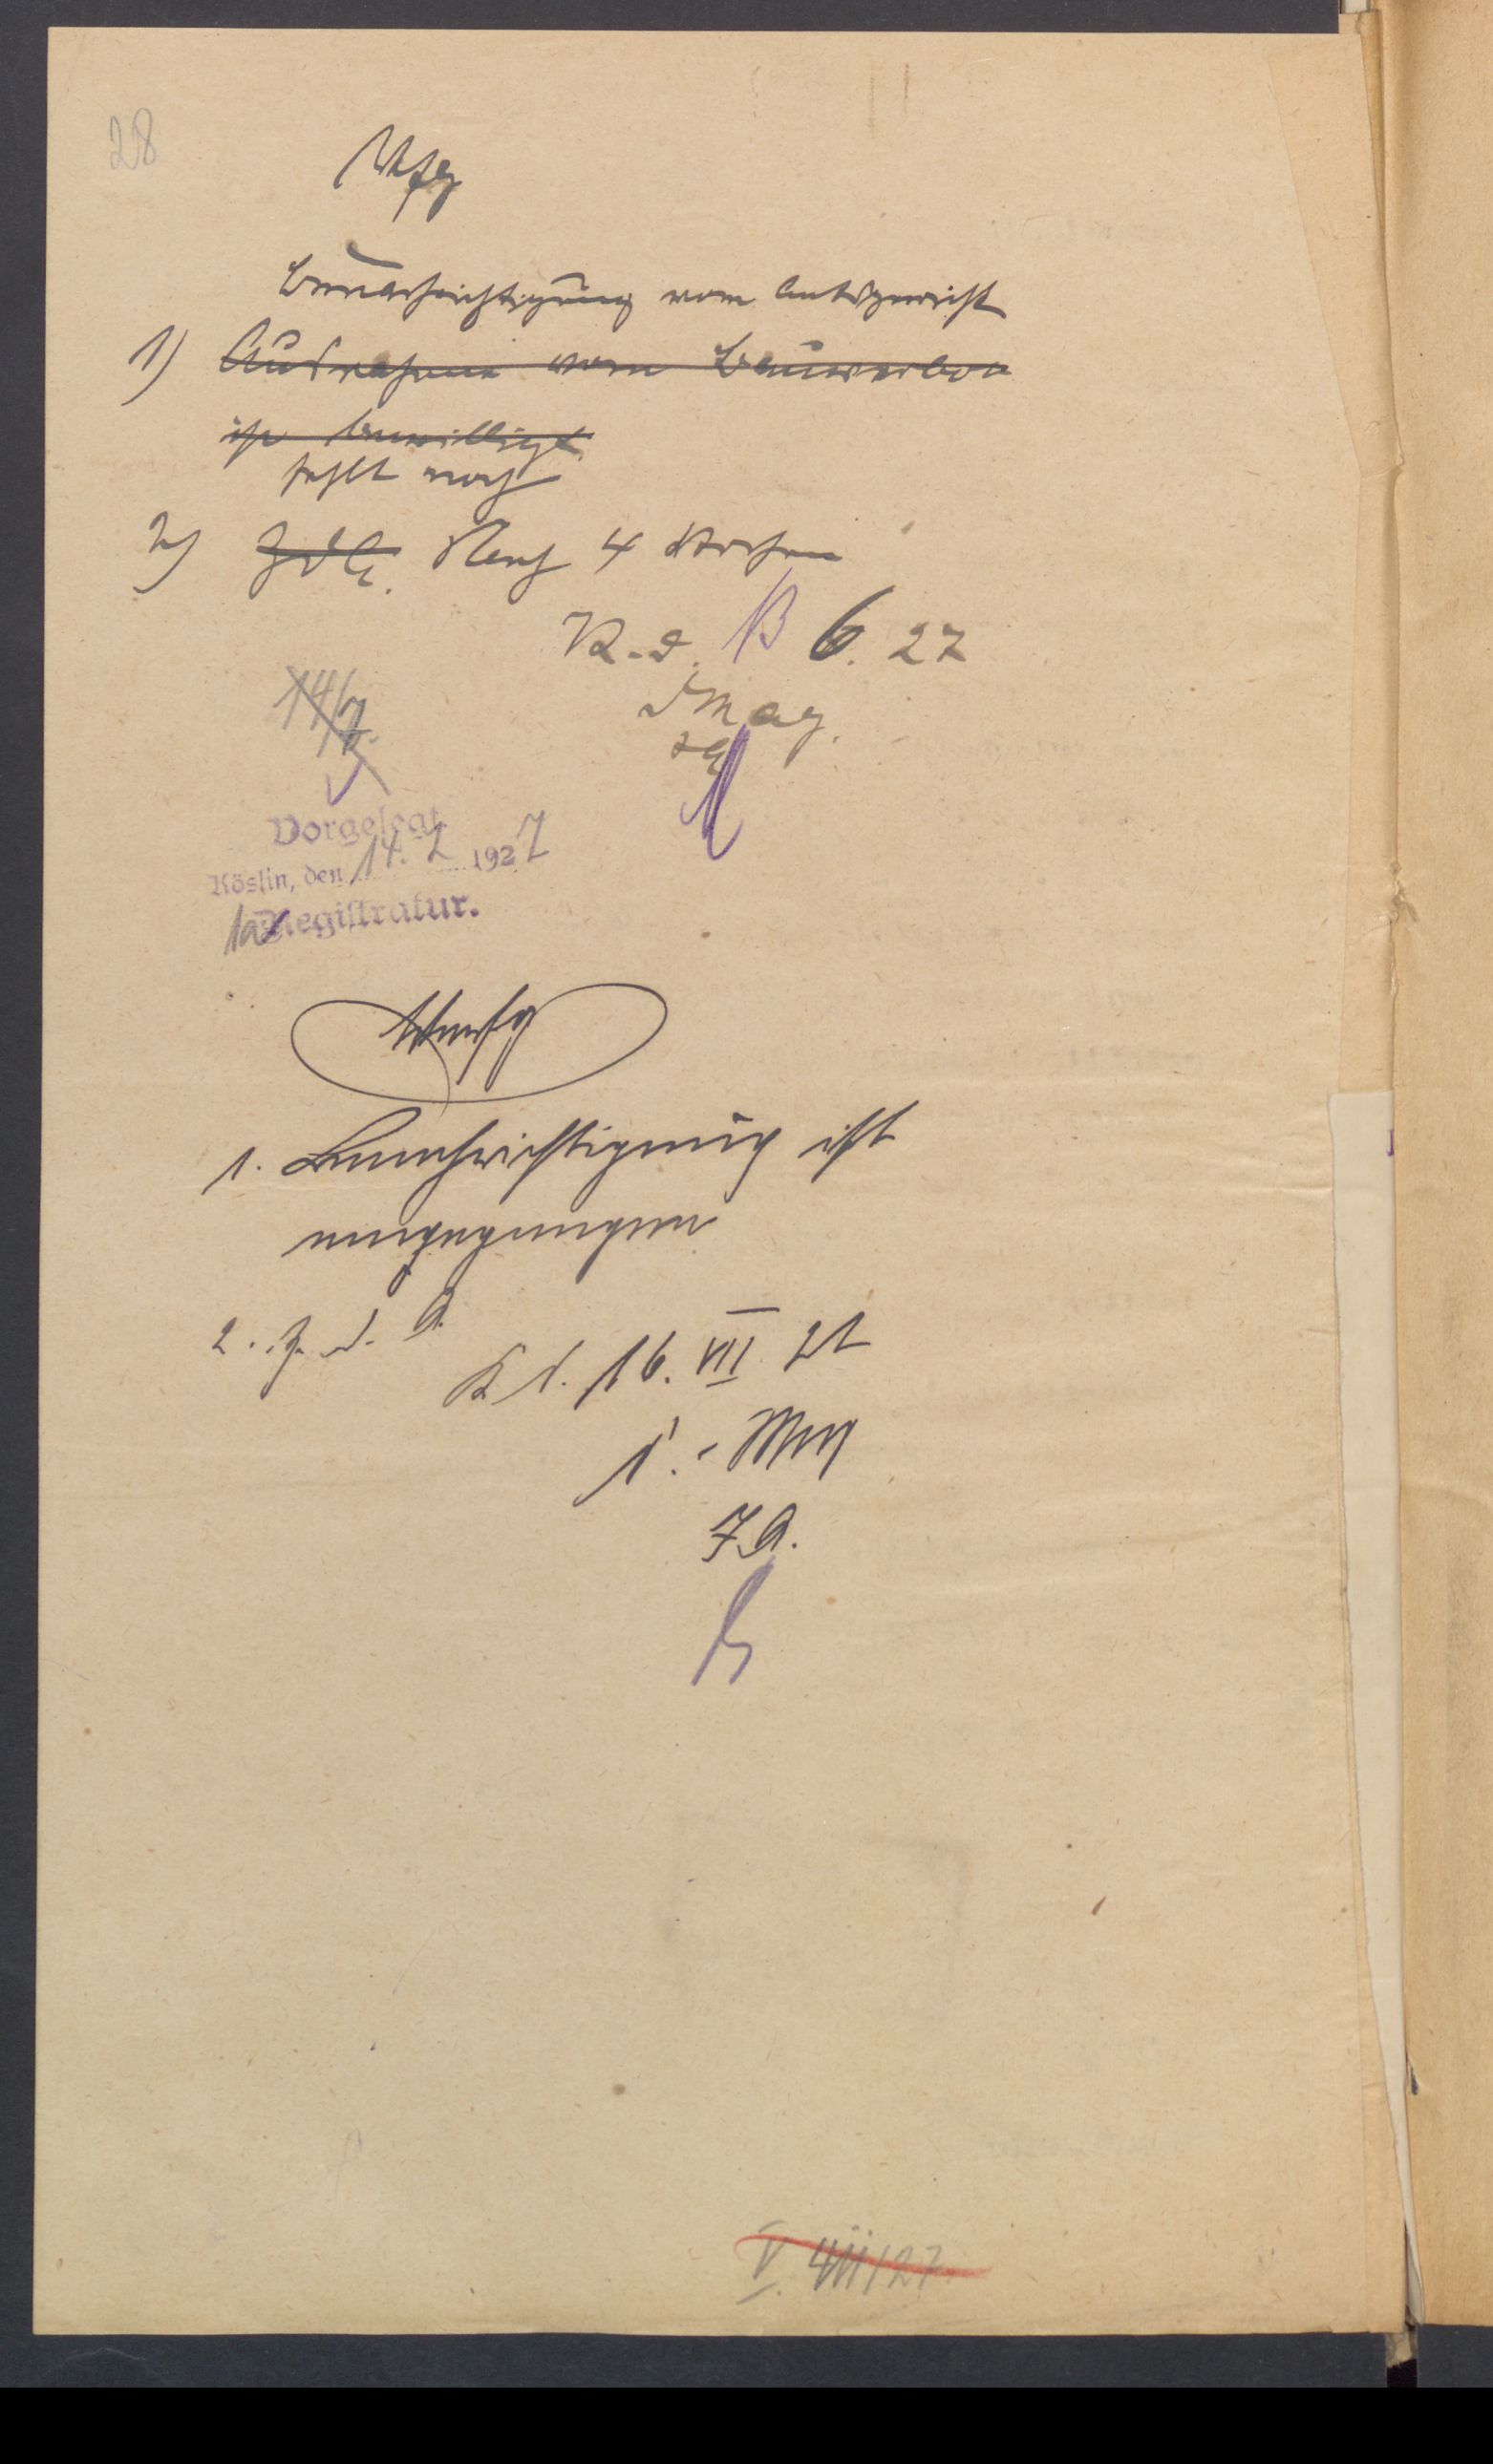 28
Vfg
Benachrichtigung vom Amtsgericht
1) Ausnahme vom Bauverbot
ist bewilligt
fehlt noch
2) Z.d.A. Nach 4 Wochen
K. d. 13 6. 27
D Mag.
14/7.
Vorgelegt
Köslin, den 14. 7 1927
Registratur.
Verfg
1. Benachrichtigung ist
eingegangen
2. Z. d. A.
K d. 16. VII 27
D. Mag
J A.
V. 4111/27